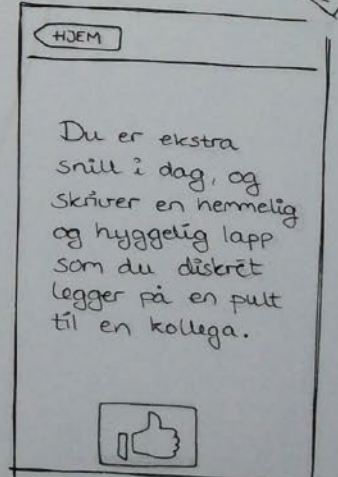 HJEM
Du er ekstra
snill i dag, og
skriver en hemmelig
og hyggelig lapp
som du diskrét
legger på en pult
til en kollega.